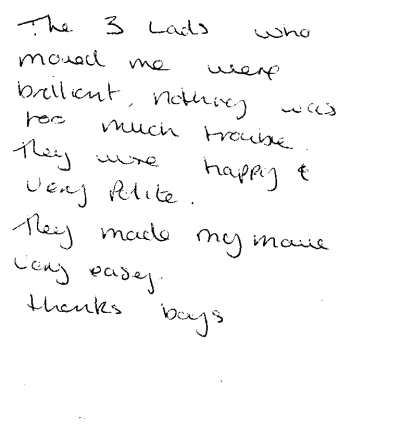 The 3 Lads who
moved me were
brilliant, nothing was
too much trouble.
They were happy &
very Polite.
They made my move
very easey.
thanks boys